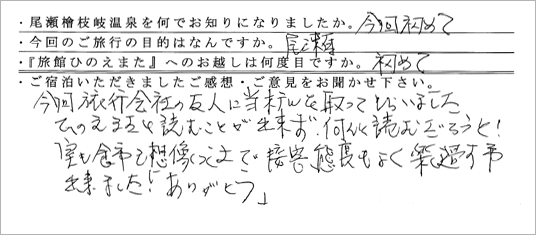 ・尾瀬檜枝岐温泉を何でお知りになりましたか。今回初めて
・今回のご旅行の目的はなんですか。尾瀬
・『旅館ひのえまた』へのお越しは何度目ですか。初めて
・ご宿泊いただきましたご感想・ご意見をお聞かせ下さい。
今回旅行会社の友人に当村を取ってもらいました
ひのえまたと読むことが出来ず、何んと読むだろうと!
室も食事も想像 接客態度もよく 過す事
出来ました!ありがとう」